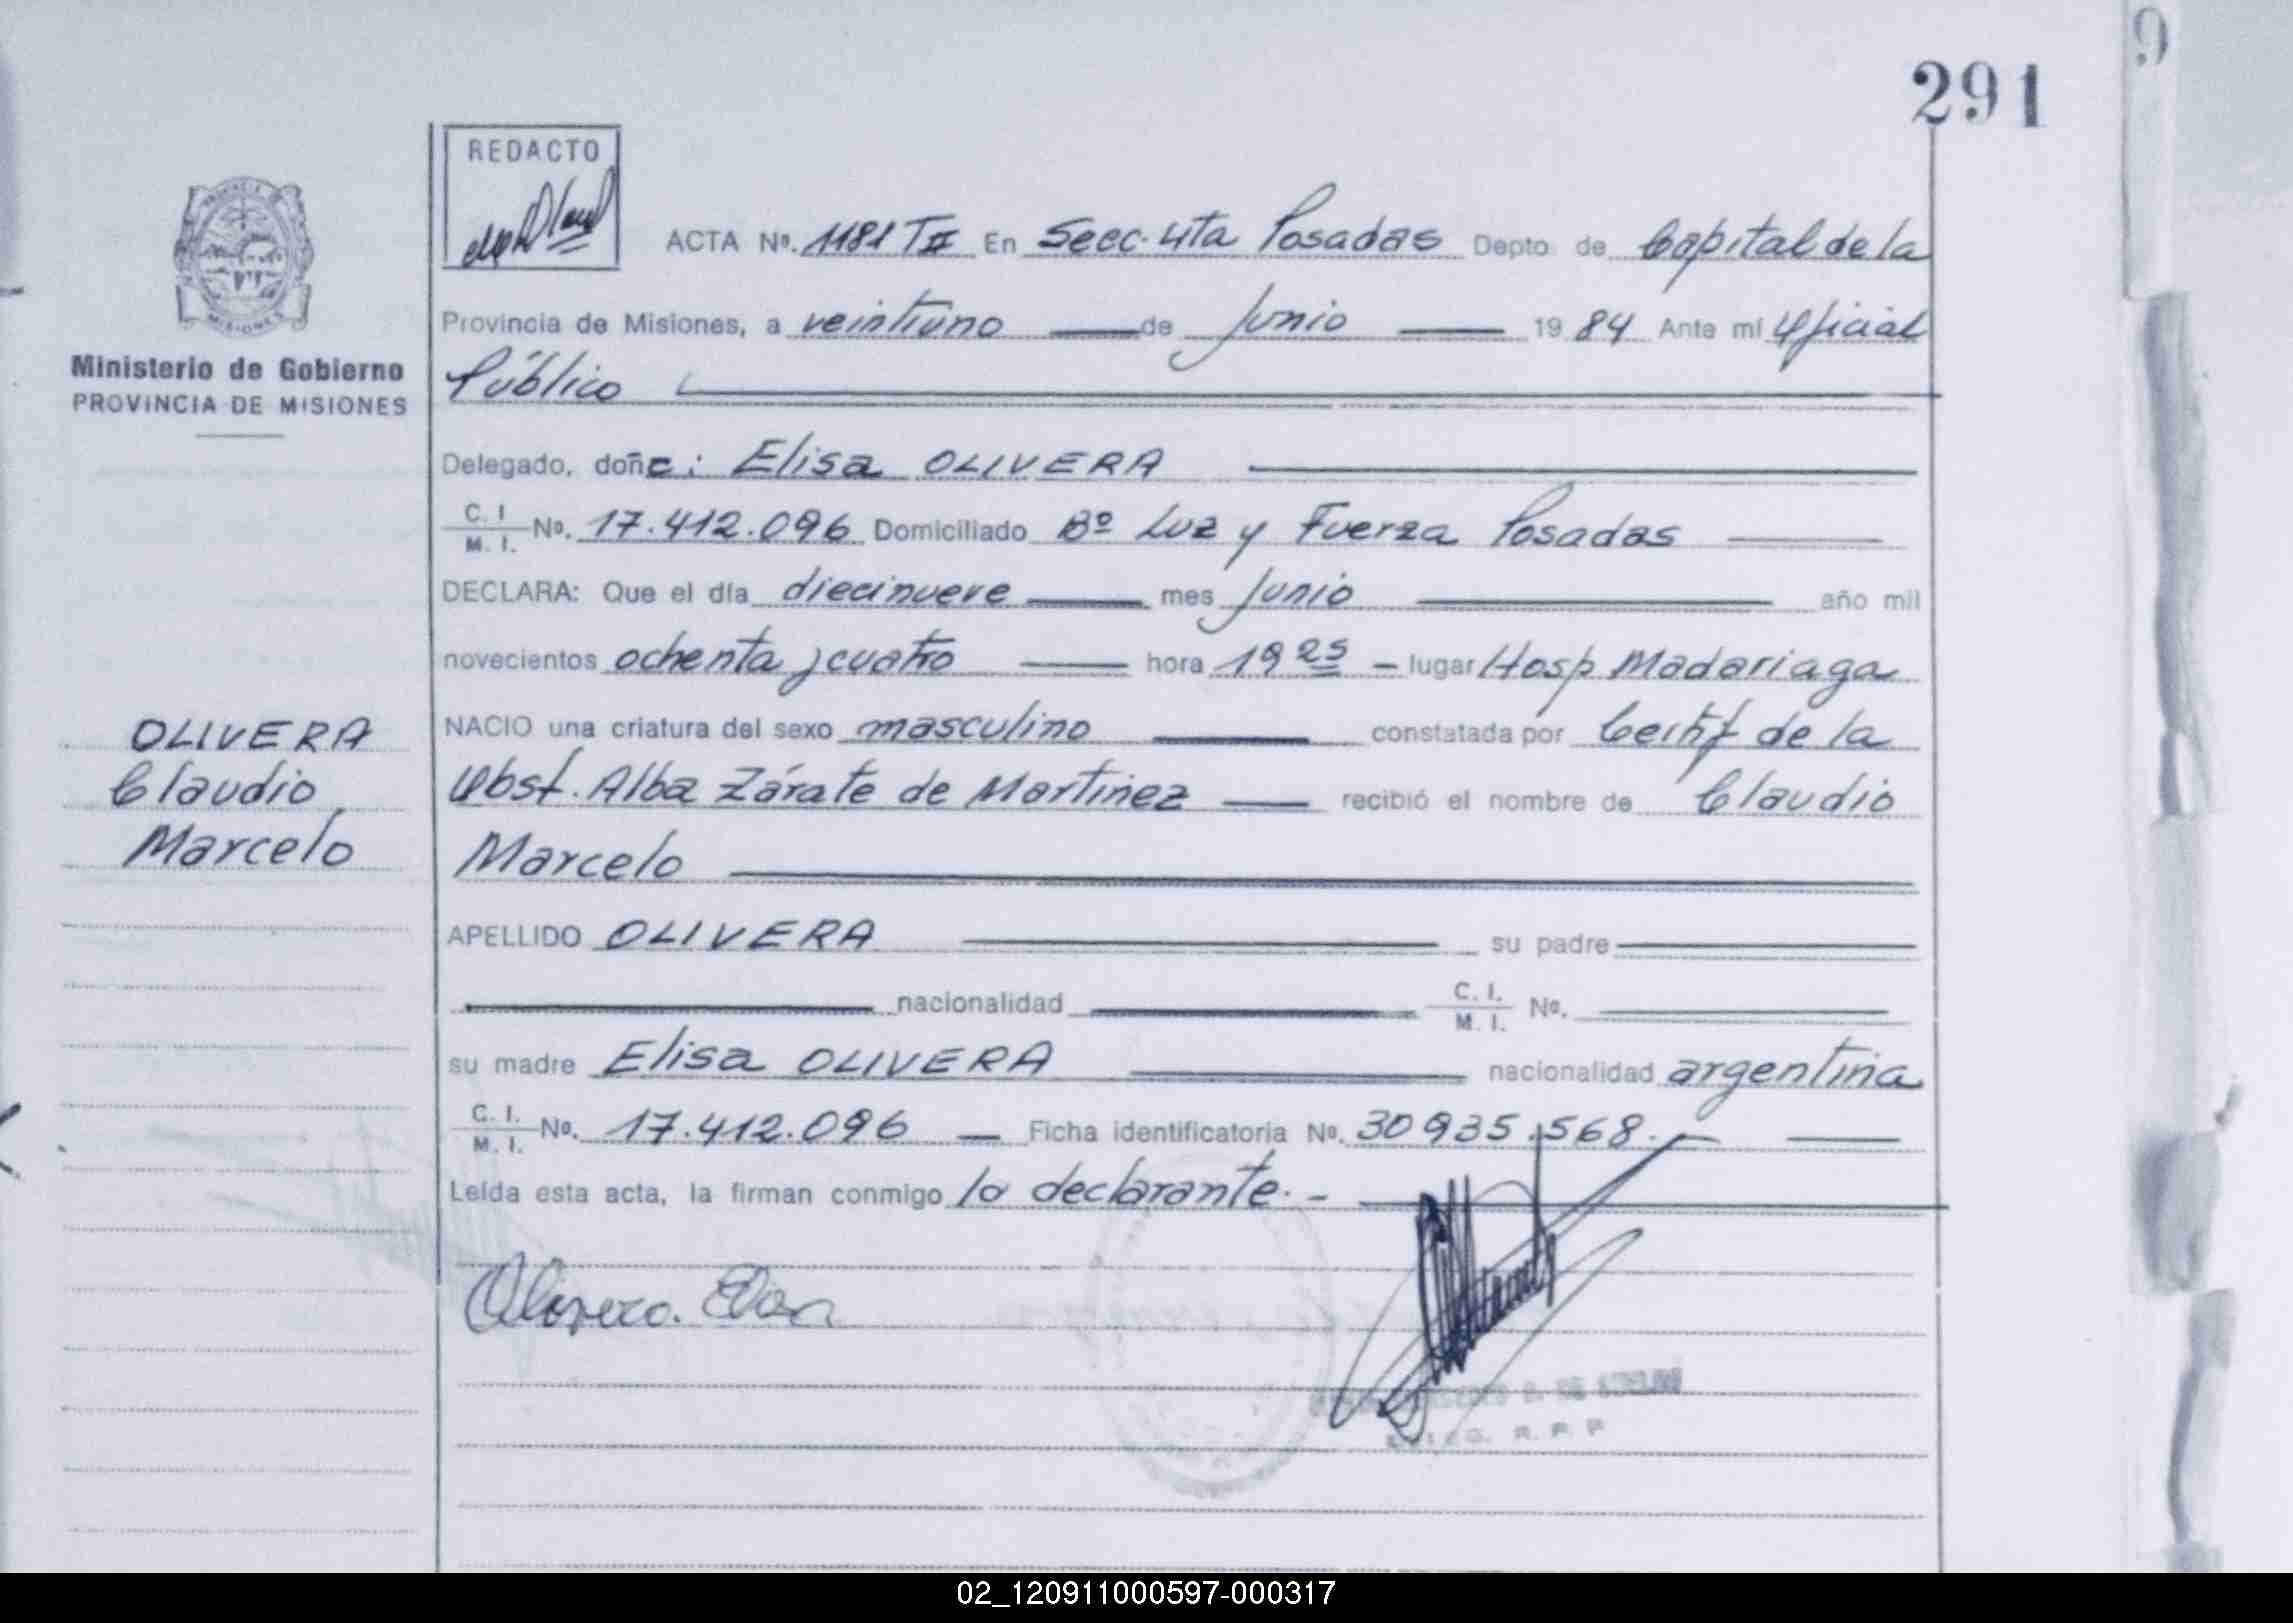 291
REDACTO
ACTA Nº. 1181 T II En Secc. 4ta Posadas Depto. de Capital de la
Provincia de Misiones, a veintiuno de Junio 1984 Ante mí Oficial
Público
Ministerio de Gobierno
PROVINCIA DE MISIONES
Delegado, doña: Elisa OLIVERA
C. I. / M. I. Nº. 17.412.096 Domiciliado Bº Luz y Fuerza Posadas
DECLARA: Que el día diecinueve mes Junio año mil
novecientos ochenta y cuatro hora 19 25 - lugar Hosp Madariaga
NACIO una criatura del sexo masculino constatada por Certif de la
Obst. Alba Zárate de Martinez recibió el nombre de Claudio
Marcelo
OLIVERA
Claudio
Marcelo
APELLIDO OLIVERA su padre
nacionalidad C. I. / M. I. Nº.
su madre Elisa OLIVERA nacionalidad argentina
C. I. / M. I. Nº. 17.412.096 Ficha identificatoria Nº. 30935.568.-
Leída esta acta, la firman conmigo la declarante. -
Olivera. Elisa
02_120911000597-000317